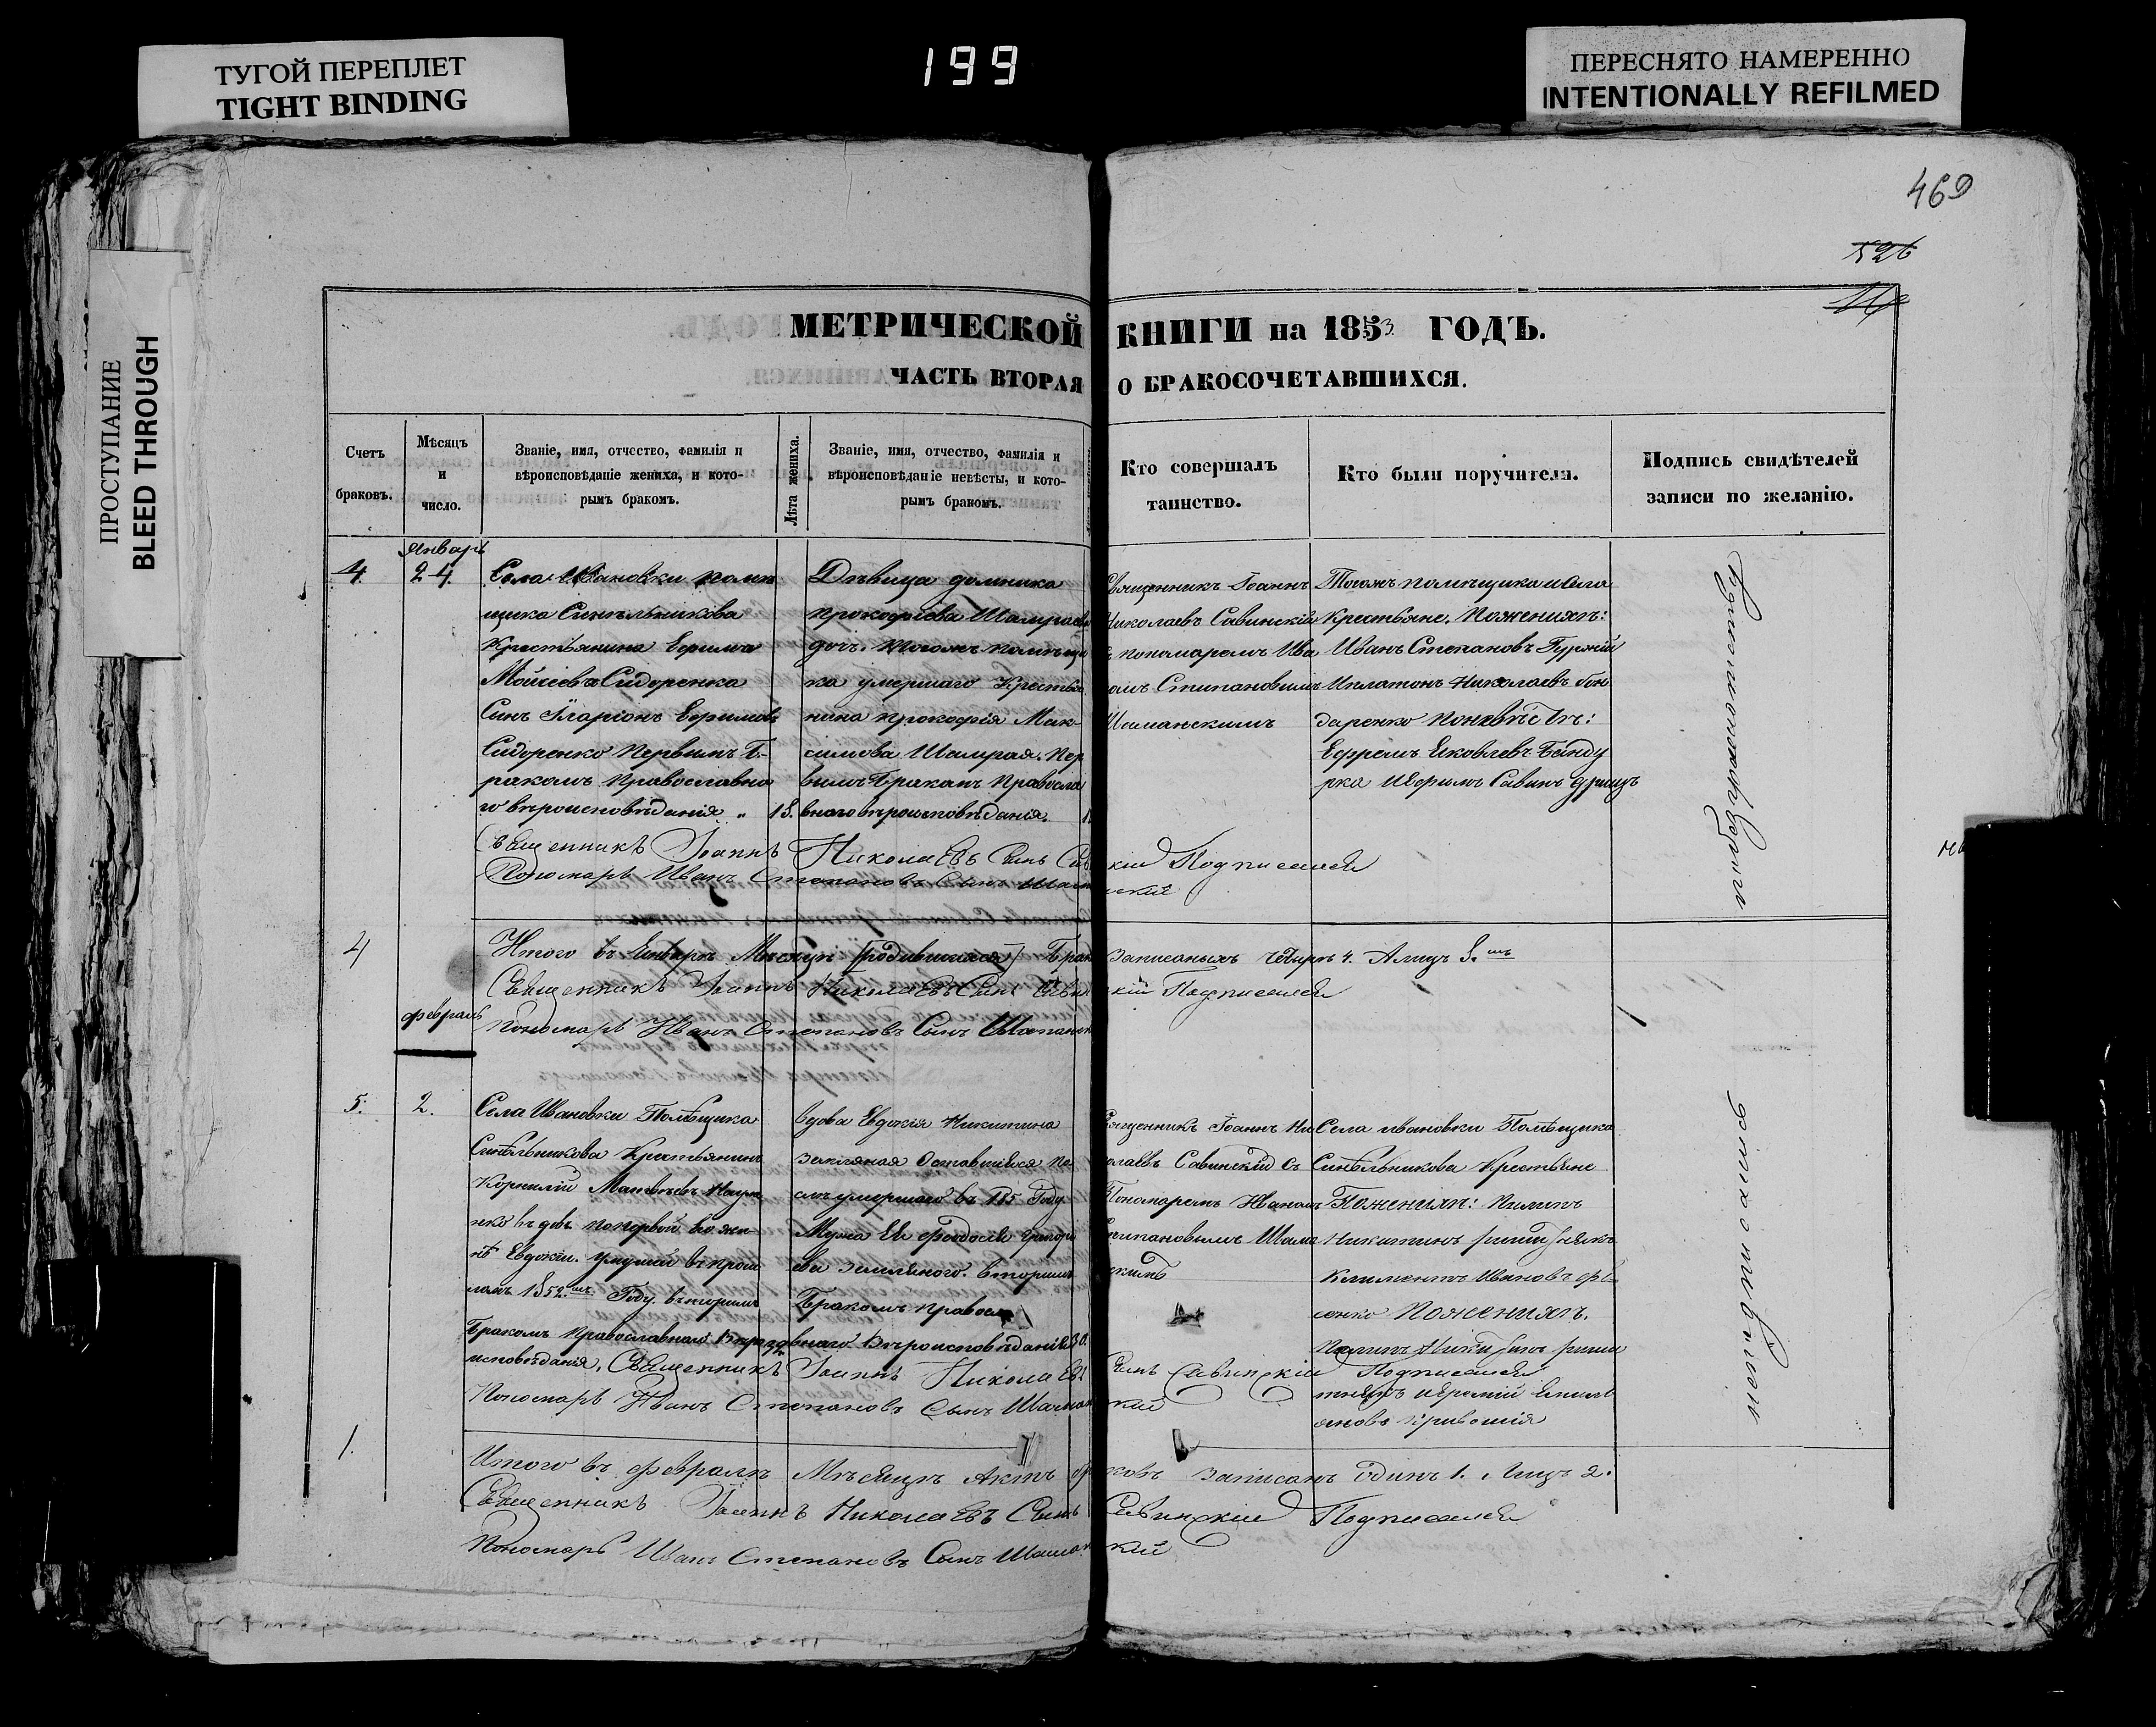 199
ТУГОЙ ПЕРЕПЛЕТ
TIGHT BINDING
ПЕРЕСНЯТО НАМЕРЕННО
INTENTIONALLY REFILMED
ПРОСТУПАНИЕ
BLEED THROUGH
469
526
МЕТРИЧЕСКОЙ КНИГИ на 1853 ГОДЪ.
ЧАСТЬ ВТОРАЯ О БРАКОСОЧЕТАВШИХСЯ.
Счетъ
браковъ.
Мѣсяцъ
и
число.
Званіе, имя, отчество, фамилія и
вѣроисповѣданіе жениха, и кото-
рымъ бракомъ.
Лѣта жениха.
Званіе, имя, отчество, фамилія и
вѣроисповѣданіе невѣсты, и кото-
рымъ бракомъ.
Кто совершалъ
таинство.
Кто были поручители.
Подпись свидѣтелей
записи по желанію.
4
Январь
24.
Села Ивановки помѣ
щика Синельникова
Крестьянина Ефима
Мойсеева Сидоренка
Сынъ Іларіонъ Ефимовъ
Сидоренко Первымъ Б-
ракомъ Православна
го вѣроисповѣданія
18.
Дѣвица домника
Прокофіева Шамраева
дочь. Тогожъ помѣщи
ка умершаго Крестья
нина Прокофія Мак-
симова Шамрая. Пер
вымъ Бракомъ Правосла
внаго вѣроисповѣданія.
Священникъ Іоаннъ
Николаевъ Савинскій
съ пономаремъ Ива
номъ Стипановымъ
Шаманскимъ
Тогожъ помѣщика и села
Крестьяне. По женихѣ:
Иванъ Степановъ Гуржій
И платонъ Николаевъ бон
даренко По невѣстѣ:
Ефремъ Яковлевъ Банду
рка И Ефимъ Савинъ
Священникъ Іоаннъ Николаевъ Сынъ Савинскій Подписался
Пономарь Иванъ Степановъ Сынъ Шаманскій
4
Итого въ Январѣ Мѣсяцѣ [родившихся] Брак записаныхъ 4. А лицъ 8.мь
Священникъ Іоаннъ Николаевъ Сынъ Савинскій Подписался
Пономарь Иванъ Степановъ Сынъ Шаманск
февраль
5.
2.
Села Ивановки Помѣщика
Синельникова Крестьянинъ
Корнилій Матвѣевъ Наум
нко вдовъ по первой его же-
нѣ Евдокіи. умершей въ прош
ломъ 1852.мъ Году. вторымъ
Бракомъ Православнаго Вѣро
исповѣданія.
вдова Евдокія Никитина
Земляная Оставшаяся по-
слѣ умершаго въ 185 Году
Мужа Ея феодосія Григорі
ева Землянаго. вторымъ
Бракомъ правосла
внаго Вѣроисповѣданія 30.
Священникъ Іоаннъ Ни
колаевъ Савинскій съ
Пономаремъ Иваномъ
Стипановымъ Шама
скимъ
Села ивановки Помѣщика
Синельникова Крестьяне
По женихѣ: Пилипъ
Никитинъ
Климентъ Ивановъ
сенко По женихѣ.
Священникъ Іоаннъ Николаевъ Сынъ Савинскій Подписался
Пономарь Иванъ Степановъ Сынъ Шаманскій
1.
Итого въ февралѣ Мѣсяцѣ Актъ браковъ Записанъ Одинъ 1. Лицъ 2.
Священникъ Іоаннъ Николаевъ Сынъ Савинскій Подписался
Пономарь Иванъ Степановъ Сынъ Шаманскій